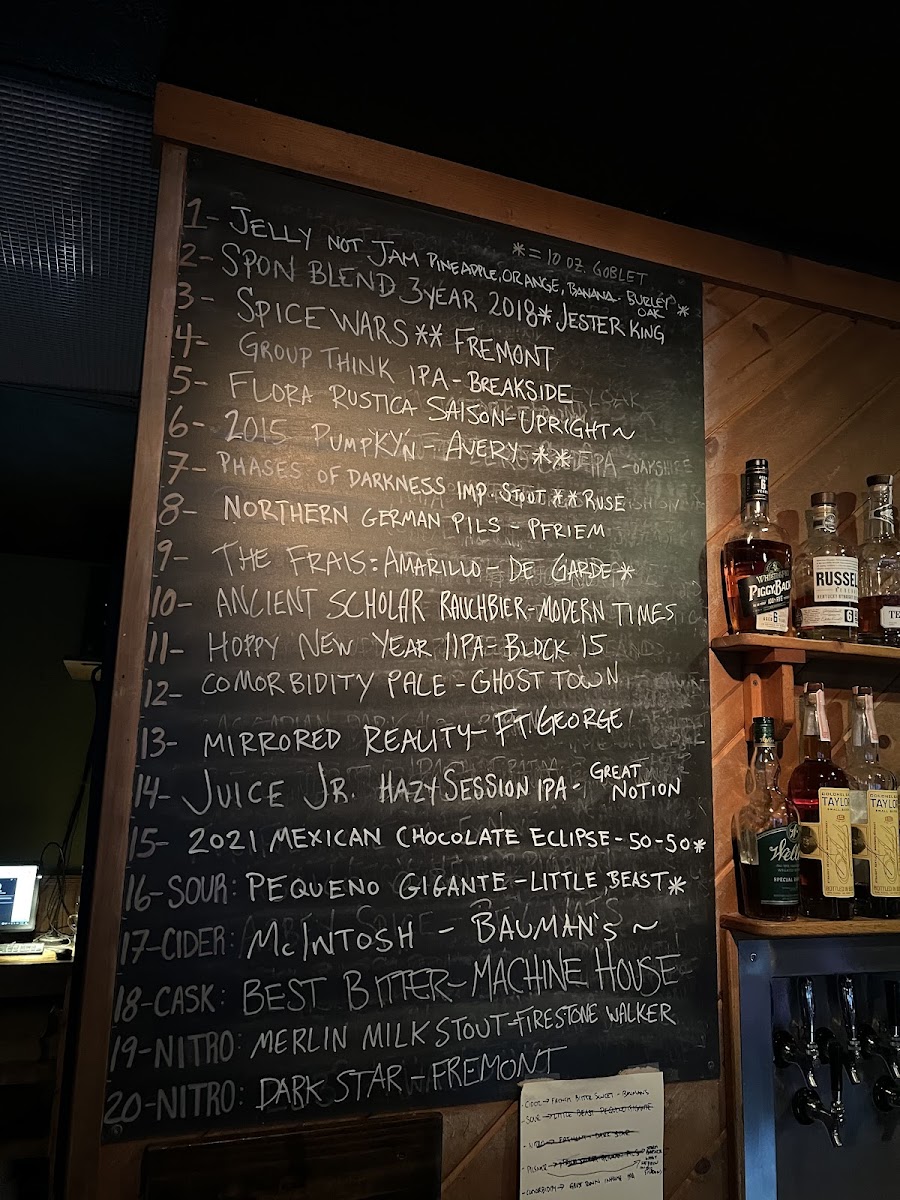 * = 10 OZ. GOBLET
1- JELLY NOT JAM PINEAPPLE, ORANGE, BANANA - BURLEY OAK *
2- SPON BLEND 3 YEAR 2018* JESTER KING
3- SPICE WARS ** FREMONT
4- GROUP THINK IPA - BREAKSIDE
5- FLORA RUSTICA SAISON - UPRIGHT ~
6- 2015 PUMPKY'N - AVERY **
7- PHASES OF DARKNESS IMP. STOUT ** RUSE
8- NORTHERN GERMAN PILS - PFRIEM
9- THE FRAIS: AMARILLO - DE GARDE *
10- ANCIENT SCHOLAR RAUCHBIER - MODERN TIMES
11- HOPPY NEW YEAR IIPA - BLOCK 15
12- COMORBIDITY PALE - GHOST TOWN
13- MIRRORED REALITY - FT. GEORGE
14- JUICE JR. HAZY SESSION IPA - GREAT NOTION
15- 2021 MEXICAN CHOCOLATE ECLIPSE - 50-50*
16- SOUR: PEQUENO GIGANTE - LITTLE BEAST *
17- CIDER: McINTOSH - BAUMAN'S ~
18- CASK: BEST BITTER - MACHINE HOUSE
19- NITRO: MERLIN MILK STOUT - FIRESTONE WALKER
20- NITRO: DARK STAR - FREMONT
CIDER → FRENCH BITTER SWEET - BAUMANS
SOUR → LITTLE BEAST PEQUENO GIGANTE
NITRO → FREMONT - DARK STAR
PILSNER →
COMORBIDITY → GHOST TOWN
WHISTLEPIG
PIGGYBACK
AGED 6
RUSSEL
6
TE
Welle
SPECIAL
COLONEL E.H.
TAYLOR
COLONEL E.H.
TAYLOR